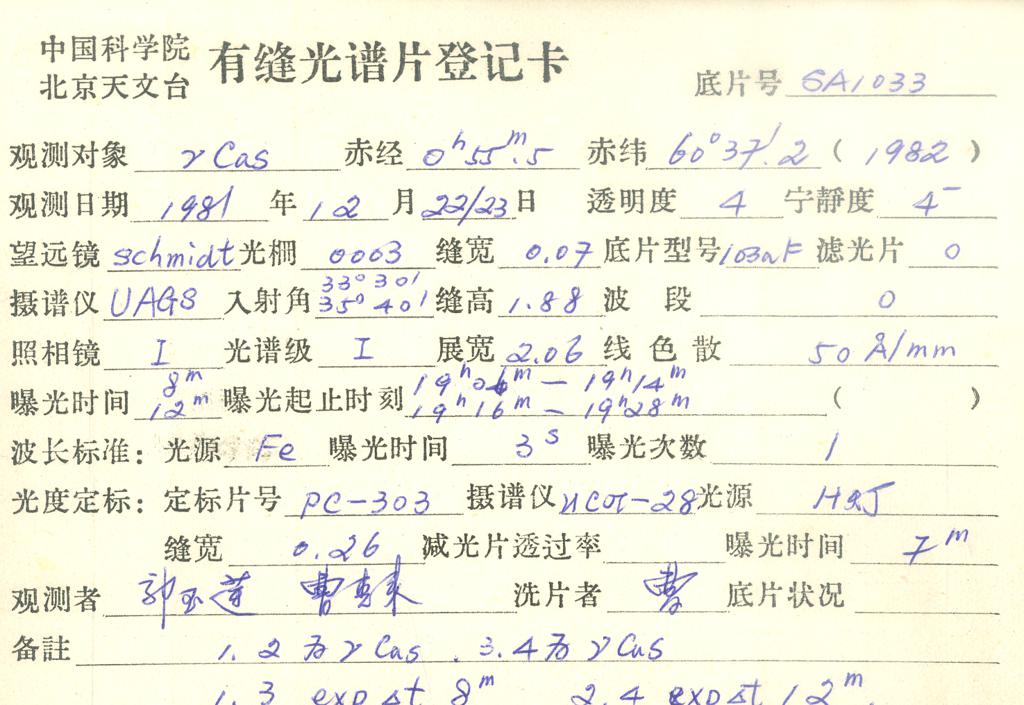 中国科学院
北京天文台
有缝光谱片登记卡
底片号 SA1033
观测对象 γ Cas 赤经 0ʰ55ᵐ.5 赤纬 60°37′.2 ( 1982 )
观测日期 1981 年 12 月 22/23 日 透明度 4 宁静度 4⁻
望远镜 schmidt 光栅 0003 缝宽 0.07 底片型号 103aF 滤光片 0
摄谱仪 UAGS 入射角 33°30′ 35°40′ 缝高 1.88 波段 0
照相镜 I 光谱级 I 展宽 2.06 线色散 50 Å/mm
曝光时间 8ᵐ 12ᵐ 曝光起止时刻 19ʰ06ᵐ — 19ʰ14ᵐ 19ʰ16ᵐ — 19ʰ28ᵐ ( )
波长标准: 光源 Fe 曝光时间 3ˢ 曝光次数 1
光度定标: 定标片号 PC-303 摄谱仪 光源
缝宽 0.26 减光片透过率 曝光时间 7ᵐ
观测者 郭玉莲 曹 洗片者 曹 底片状况
备註 1. 2 为 γ Cas . 3. 4 为 γ Cas
1. 3 expst 8ᵐ 2. 4 expst 12ᵐ.